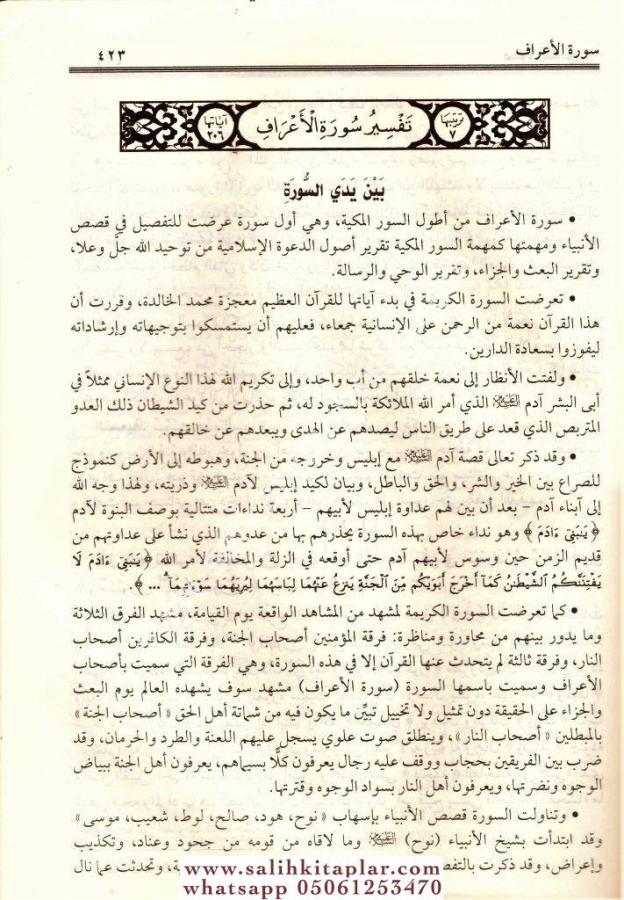 سورة الأعراف
٤٢٣
ترتيبها ٧
تَفْسِيرُ سُورَةِ الْأَعْرَافِ
آياتها ٢٠٦
بَيْنَ يَدَيِ السُّورَةِ
• سورة الأعراف من أطول السور المكية، وهي أول سورة عرضت للتفصيل في قصص
الأنبياء ومهمتها كمهمة السور المكية تقرير أصول الدعوة الإسلامية من توحيد الله جلَّ وعلا،
وتقرير البعث والجزاء، وتقرير الوحي والرسالة.
• تعرضت السورة الكريمة في بدء آياتها للقرآن العظيم معجزة محمد الخالدة، وقررت أن
هذا القرآن نعمة من الرحمن على الإنسانية جمعاء، فعليهم أن يستمسكوا بتوجيهاته وإرشاداته
ليفوزوا بسعادة الدارين.
• ولفتت الأنظار إلى نعمة خلقهم من أب واحد، وإلى تكريم الله لهذا النوع الإنساني ممثلاً في
أبى البشر آدم عليه السلام الذي أمر الله الملائكة بالسجود له، ثم حذرت من كيد الشيطان ذلك العدو
المتربص الذي قعد على طريق الناس ليصدهم عن الهدى ويبعدهم عن خالقهم.
• وقد ذكر تعالى قصة آدم عليه السلام مع إبليس وخروجه من الجنة، وهبوطه إلى الأرض كنموذج
للصراع بين الخير والشر، والحق والباطل، وبيان لكيد إبليس لآدم عليه السلام وذريته، ولهذا وجه الله
إلى أبناء آدم - بعد أن بين لهم عداوة إبليس لأبيهم - أربعة نداءات متتالية بوصف البنوة لآدم
﴿ يَٰبَنِيٓ ءَادَمَ ﴾ وهو نداء خاص بهذه السورة يحذرهم بها من عدوهم الذي نشأ على عداوتهم من
قديم الزمن حين وسوس لأبيهم آدم حتى أوقعه في الزلة والمخالفة لأمر الله ﴿ يَٰبَنِيٓ ءَادَمَ لَا
يَفْتِنَنَّكُمُ ٱلشَّيْطَٰنُ كَمَآ أَخْرَجَ أَبَوَيْكُم مِّنَ ٱلْجَنَّةِ يَنزِعُ عَنْهُمَا لِبَاسَهُمَا لِيُرِيَهُمَا سَوْءَٰتِهِمَآ ... ﴾.
• كما تعرضت السورة الكريمة لمشهد من المشاهد الواقعة يوم القيامة، مشهد الفرق الثلاثة
وما يدور بينهم من محاورة ومناظرة: فرقة المؤمنين أصحاب الجنة، وفرقة الكافرين أصحاب
النار، وفرقة ثالثة لم يتحدث عنها القرآن إلا في هذه السورة، وهي الفرقة التي سميت بأصحاب
الأعراف وسميت باسمها السورة (سورة الأعراف) مشهد سوف يشهده العالم يوم البعث
والجزاء على الحقيقة دون تمثيل ولا تخييل تبيِّن ما يكون فيه من شماتة أهل الحق «أصحاب الجنة»
بالمبطلين «أصحاب النار»، وينطلق صوت علوي يسجل عليهم اللعنة والطرد والحرمان، وقد
ضرب بين الفريقين بحجاب ووقف عليه رجال يعرفون كلًّا بسيماهم، يعرفون أهل الجنة ببياض
الوجوه ونضرتها، ويعرفون أهل النار بسواد الوجوه وقترتها.
• وتناولت السورة قصص الأنبياء بإسهاب «نوح، هود، صالح، لوط، شعيب، موسى»
وقد ابتدأت بشيخ الأنبياء (نوح) عليه السلام وما لاقاه من قومه من جحود وعناد، وتكذيب
وإعراض، وقد ذكرت بالتفص ة، وتحدثت عما نال
www.salihkitaplar.com
whatsapp 05061253470